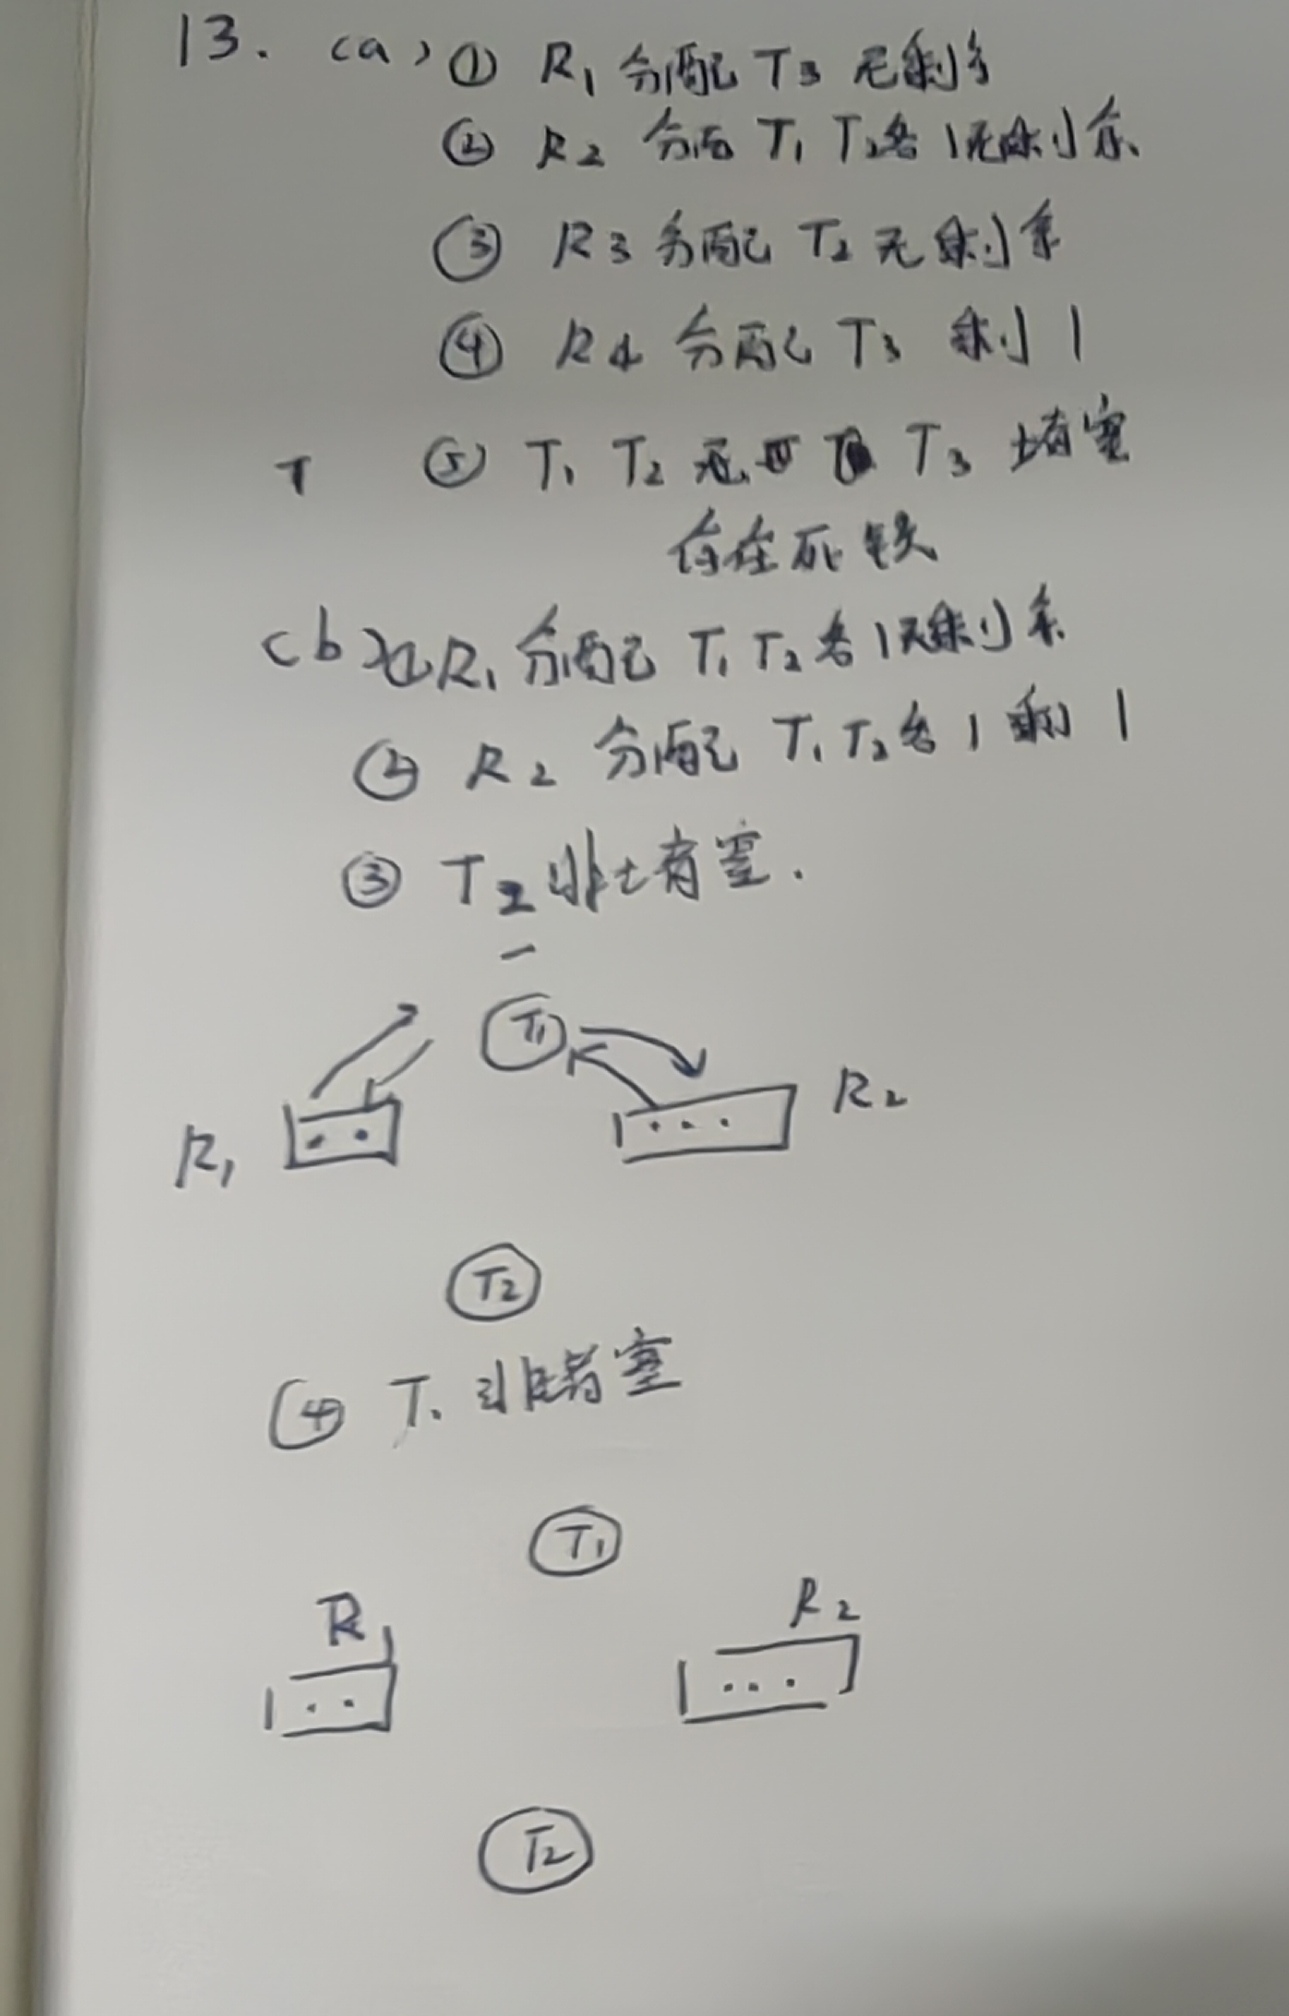 13. (a) ① R1 分配 T3 无剩余
② R2 分配 T1 T2各1无剩余
③ R3 分配 T2 无剩余
④ R4 分配 T3 剩1
⑤ T1 T2 T3 堵塞
存在死锁
(b) ① R1 分配 T1 T2各1无剩余
② R2 分配 T1 T2各1 剩1
③ T2 非堵塞.
T1
R1
R2
T2
④ T1 非堵塞
T1
R1
R2
T2